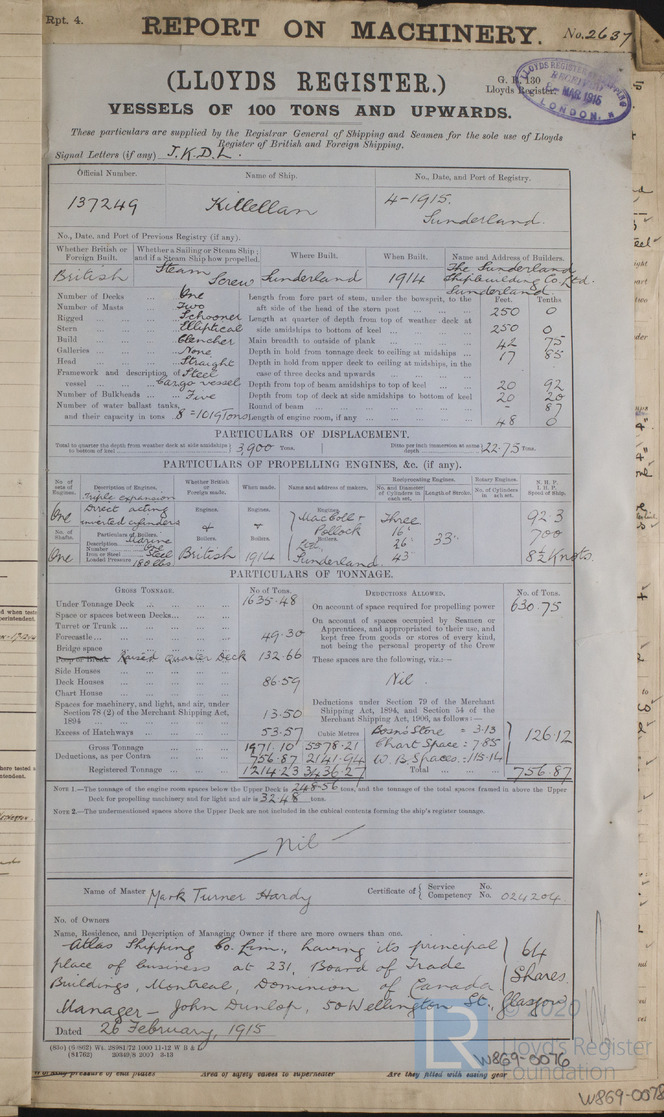 Rpt. 4.
REPORT ON MACHINERY.
No. 2637
(LLOYDS REGISTER.)
G. R. 130
Lloyds Register.
LLOYDS REGISTER OF SHIPPING
MAR 1915
LONDON.
VESSELS OF 100 TONS AND UPWARDS.
These particulars are supplied by the Registrar General of Shipping and Seamen for the sole use of Lloyds
Register of British and Foreign Shipping.
Signal Letters (if any) J.K.D.L.
Official Number. Name of Ship. No., Date, and Port of Registry.
137249 Killellan 4-1915.
Sunderland.
No., Date, and Port of Previous Registry (if any).
Whether British or Foreign Built. Whether a Sailing or Steam Ship; and if a Steam Ship how propelled. Where Built. When Built. Name and Address of Builders.
British Steam Screw Sunderland 1914 The Sunderland Shipbuilding Co. Ltd. Sunderland
Number of Decks One
Number of Masts Two
Rigged Schooner
Stern Elliptical
Build Clencher
Galleries None
Head Straight
Framework and description of vessel Steel Cargo vessel
Number of Bulkheads Five
Number of water ballast tanks, and their capacity in tons 8 = 1019 Tons
Feet. Tenths
Length from fore part of stem, under the bowsprit, to the aft side of the head of the stern post 250 0
Length at quarter of depth from top of weather deck at side amidships to bottom of keel 250 0
Main breadth to outside of plank 42 75
Depth in hold from tonnage deck to ceiling at midships 17 85
Depth in hold from upper deck to ceiling at midships, in the case of three decks and upwards
Depth from top of beam amidships to top of keel 20 92
Depth from top of deck at side amidships to bottom of keel 20 20
Round of beam - 87
Length of engine room, if any 48 0
PARTICULARS OF DISPLACEMENT.
Total to quarter the depth from weather deck at side amidships to bottom of keel 3900 Tons. Ditto per inch immersion at same depth 22.75 Tons.
PARTICULARS OF PROPELLING ENGINES, &c. (if any).
No. of sets of Engines. Description of Engines. Whether British or Foreign made. When made. Name and address of makers. Reciprocating Engines. Rotary Engines. N. H. P.
No. and Diameter of Cylinders in each set. Length of Stroke. No. of Cylinders in each set. I. H. P.
Speed of Ship.
One Triple expansion Direct acting inverted cylinders
Engines. Engines. Engines.
No. of Shafts. Particulars of Boilers.
One Description Marine
Number One
Iron or Steel Steel
Loaded Pressure 180 lbs
Boilers. Boilers. Boilers.
British 1914 MacColl & Pollock Ltd. Sunderland
Three 16" 26" 43" 33"
92.3
700
8½ Knots.
PARTICULARS OF TONNAGE.
GROSS TONNAGE. No. of Tons.
Under Tonnage Deck 1635.48
Space or spaces between Decks
Turret or Trunk
Forecastle 49.30
Bridge space
Poop or Break Raised Quarter Deck 132.66
Side Houses
Deck Houses 86.59
Chart House
Spaces for machinery, and light, and air, under Section 78 (2) of the Merchant Shipping Act, 1894 13.50
Excess of Hatchways 53.57
Cubic Metres
Gross Tonnage 1971.10 5578.21
Deductions, as per Contra 756.87 2141.94
Registered Tonnage 1214.23 3436.27
DEDUCTIONS ALLOWED. No. of Tons.
On account of space required for propelling power 630.75
On account of spaces occupied by Seamen or Apprentices, and appropriated to their use, and kept free from goods or stores of every kind, not being the personal property of the Crew
These spaces are the following, viz.:—
Nil.
Deductions under Section 79 of the Merchant Shipping Act, 1894, and Section 54 of the Merchant Shipping Act, 1906, as follows:—
Bosn's Store = 3.13
Chart Space : 7.85
W. B. Spaces. : 115.14
126.12
Total 756.87
NOTE 1.—The tonnage of the engine room spaces below the Upper Deck is 248.56 tons, and the tonnage of the total spaces framed in above the Upper
Deck for propelling machinery and for light and air is 32.48 tons.
NOTE 2.—The undermentioned spaces above the Upper Deck are not included in the cubical contents forming the ship's register tonnage.
Nil
Name of Master Mark Turner Hardy Certificate of { Service No.
Competency No. 024204
No. of Owners
Name, Residence, and Description of Managing Owner if there are more owners than one.
Atlas Shipping Co. Lim., having its principal
place of business at 231, Board of Trade
Buildings, Montreal, Dominion of Canada
64 Shares.
Manager - John Dunlop, 50 Wellington St., Glasgow
Dated 26 February, 1915
© 2020
Lloyd's Register
Foundation
W869-0076
Working pressure of end plates Area of safety valves to superheater Are they fitted with easing gear
W869-0078